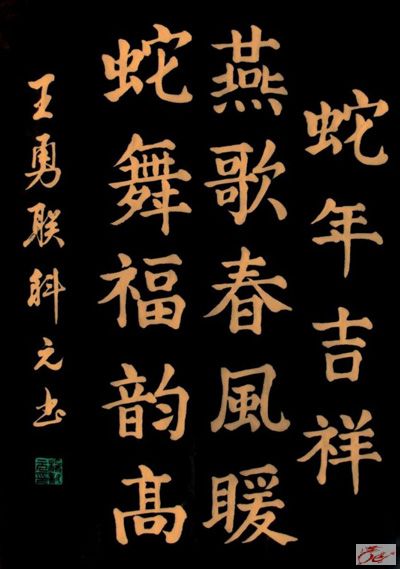 蛇年吉祥
燕歌春風暖
蛇舞福韵高
王勇联斛元书